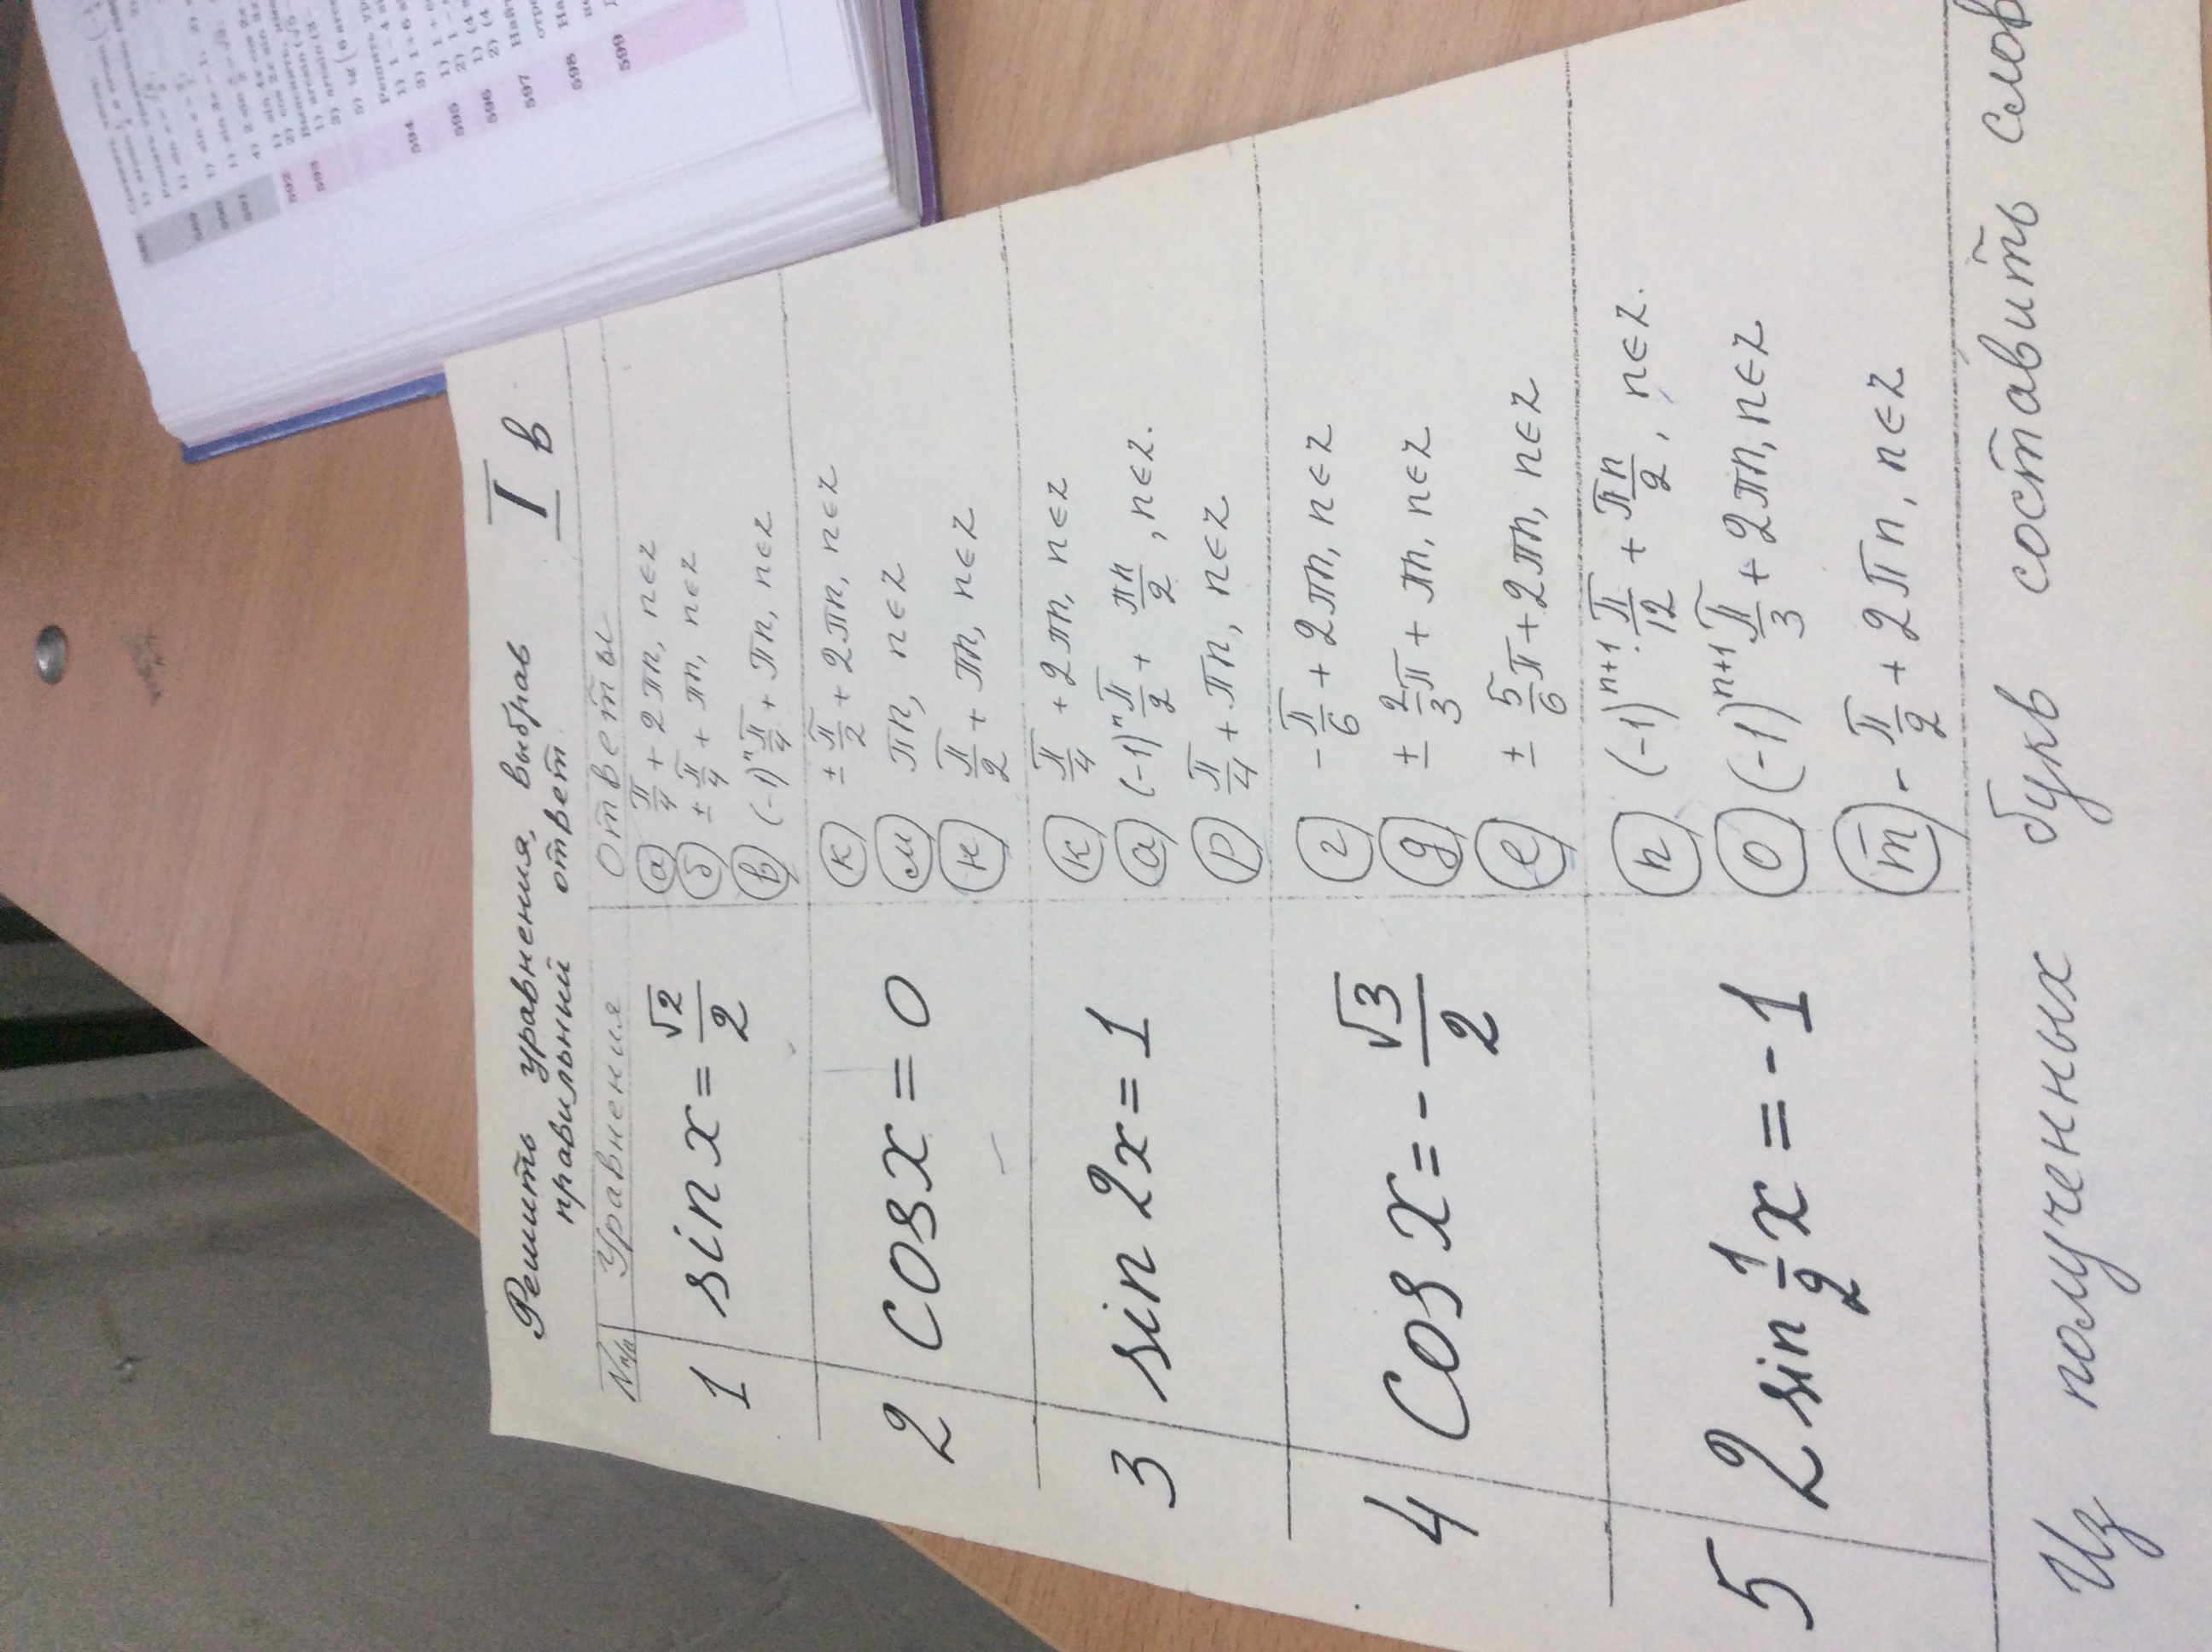 Решить уравнения, выбрав I в
правильный ответ.
N п/п Уравнения Ответы
1 sin x = √2/2
а π/4 + 2πn, n∈z
б ± π/4 + πn, n∈z
в (-1)ⁿ π/4 + πn, n∈z
2 cos x = 0
к ± π/2 + 2πn, n∈z
м πn, n∈z
н π/2 + πn, n∈z
3 sin 2x = 1
к π/4 + 2πn, n∈z
а (-1)ⁿ π/2 + πn/2, n∈z.
р π/4 + πn, n∈z
4 Cos x = - √3/2
г - π/6 + 2πn, n∈z
д ± 2/3 π + πn, n∈z
е ± 5/6 π + 2πn, n∈z
5 2 sin 1/2 x = -1
п (-1)ⁿ⁺¹ · π/12 + πn/2, n∈z.
о (-1)ⁿ⁺¹ π/3 + 2πn, n∈z
т - π/2 + 2πn, n∈z
Из полученных букв составить слов
590
591
592
593
594
595
596
597
598
599